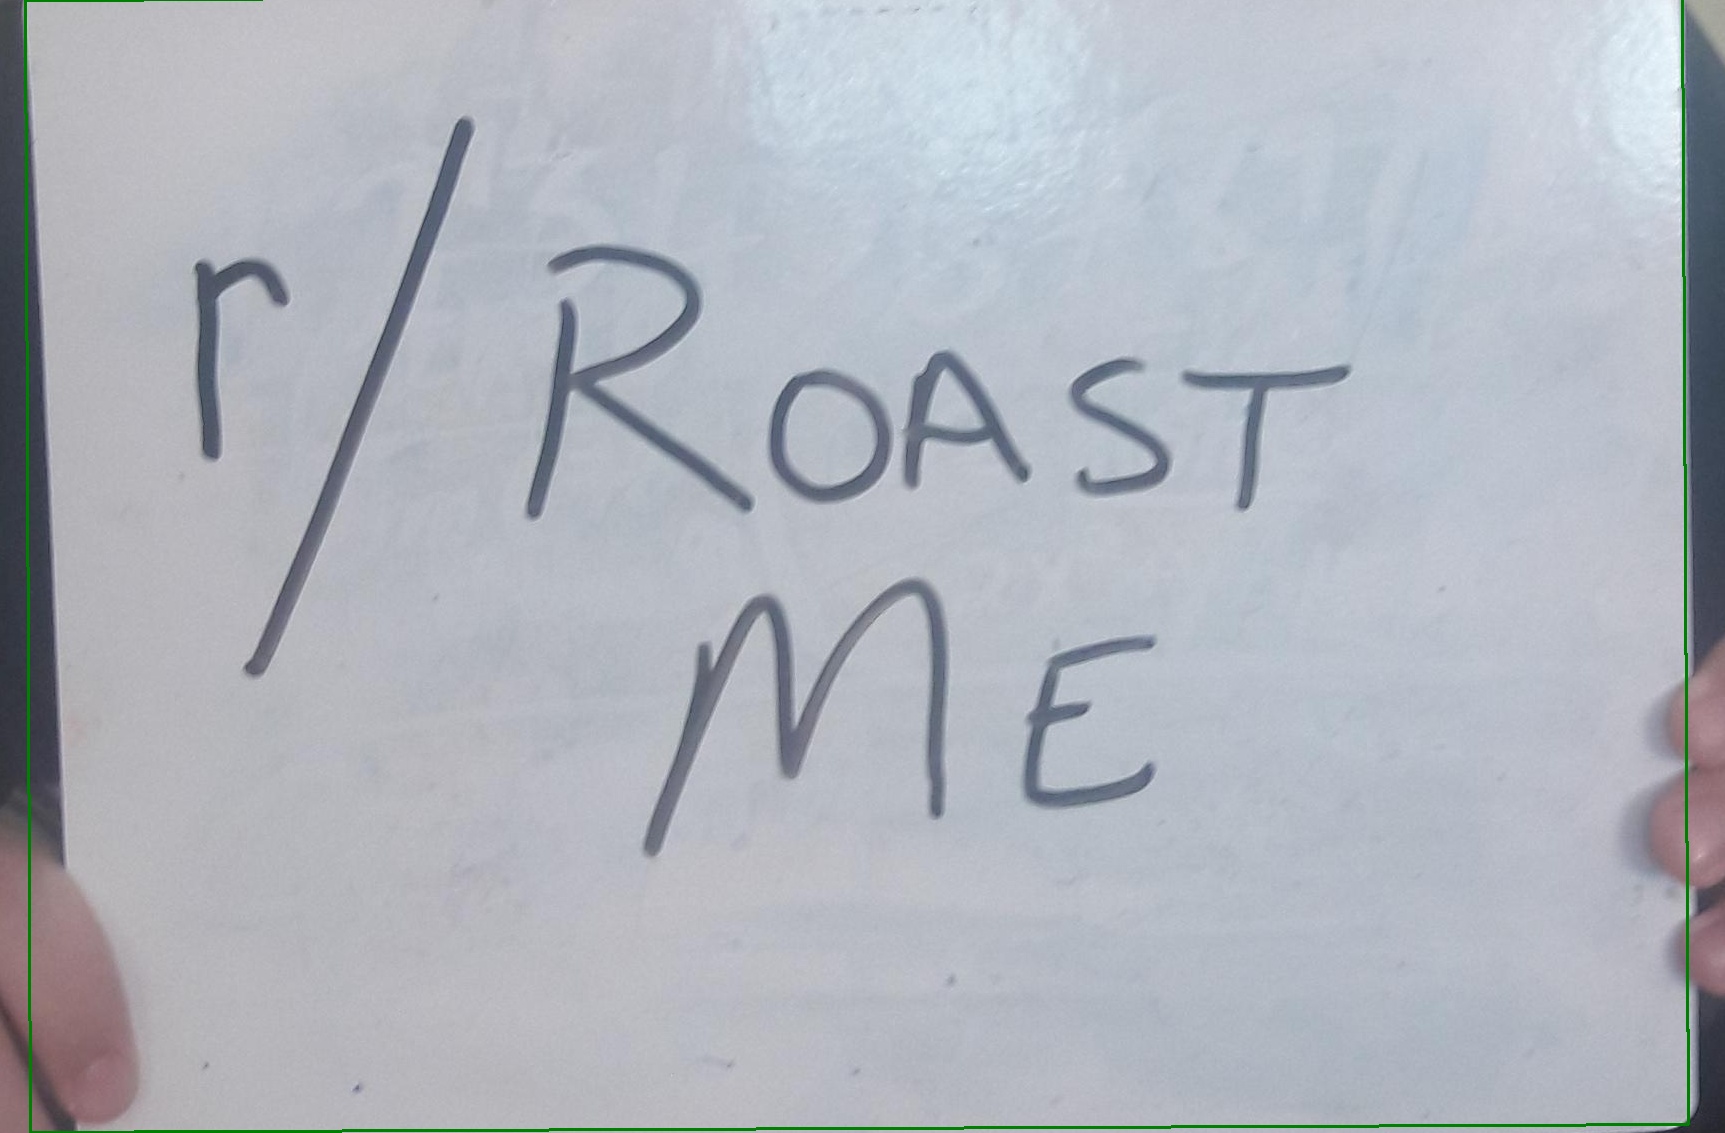 r/ROAST
ME